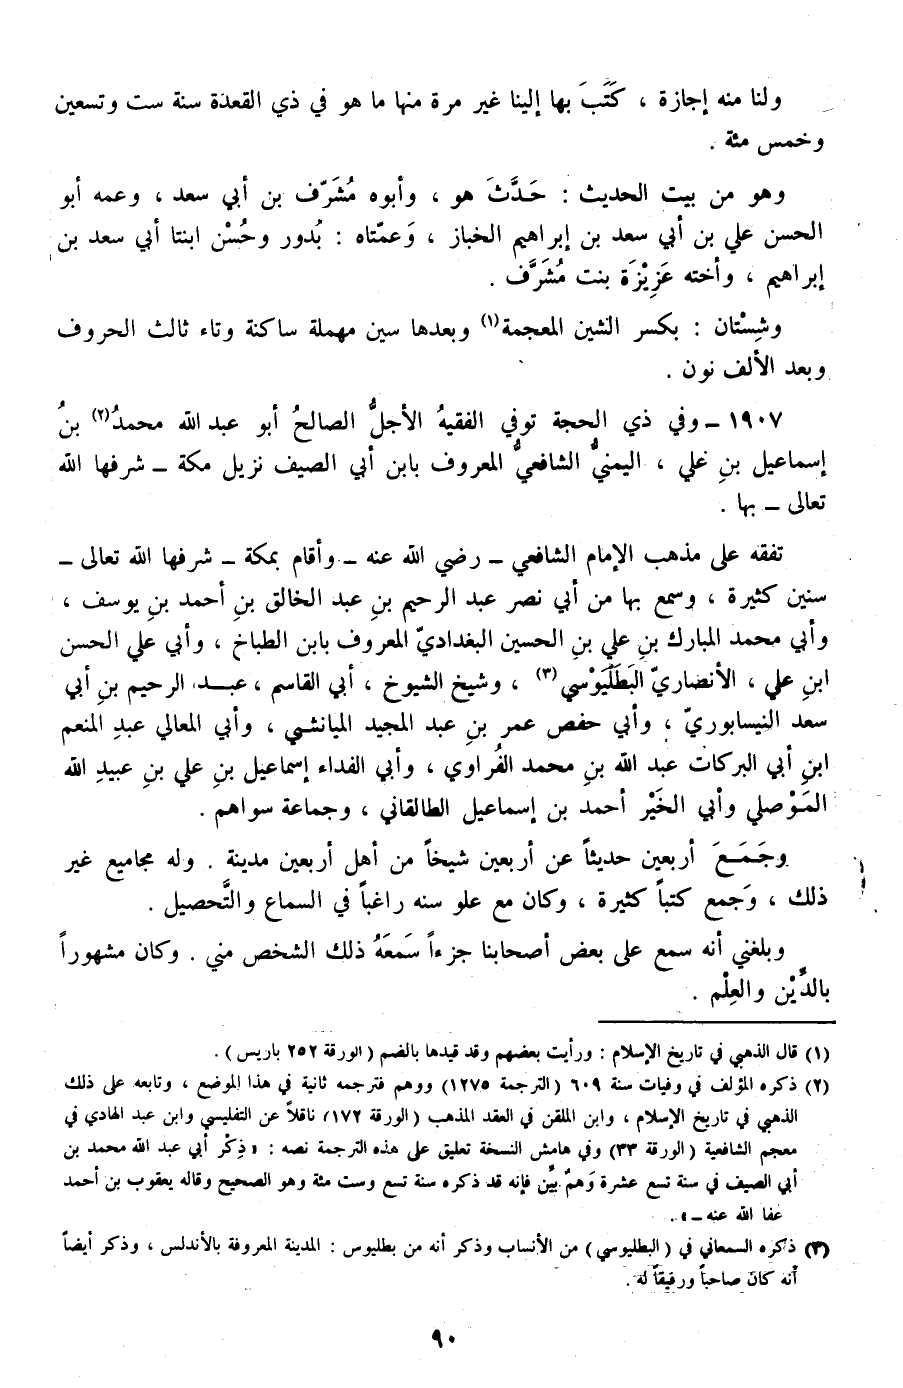 ولنا منه إجازة ، كَتَبَ بها إلينا غير مرة منها ما هو في ذي القعدة سنة ست وتسعين
وخمس مئة .
وهو من بيت الحديث : حَدَّثَ هو ، وأبوه مُشَرّف بن أبي سعد ، وعمه أبو
الحسن علي بن أبي سعد بن إبراهيم الخباز ، وَعمّتاه : بُدور وحُسْن ابنتا أبي سعد بن
إبراهيم ، وأخته عَزِيْزَة بنت مُشَرَّف .
وشِسْتان : بكسر الشين المعجمة(١) وبعدها سين مهملة ساكنة وتاء ثالث الحروف
وبعد الألف نون .
١٩٠٧ ــ وفي ذي الحجة توفي الفقيهُ الأجلُّ الصالحُ أبو عبد الله محمدُ(٢) بنُ
إسماعيل بنِ علي ، اليمنيُّ الشافعيُّ المعروف بابن أبي الصيف نزيل مكة ــ شرفها الله
تعالى ــ بها .
تفقه على مذهب الإمام الشافعي ــ رضي الله عنه ــ وأقام بمكة ــ شرفها الله تعالى ــ
سنين كثيرة ، وسمع بها من أبي نصر عبد الرحيم بنِ عبد الخالق بنِ أحمد بنِ يوسف ،
وأبي محمد المبارك بنِ علي بنِ الحسين البغداديّ المعروف بابن الطباخ ، وأبي علي الحسن
ابنِ علي ، الأنصاريّ البَطَلْيَوْسي(٣) ، وشيخ الشيوخ ، أبي القاسم ، عبد الرحيم بنِ أبي
سعد النيسابوريّ ، وأبي حفص عمر بنِ عبد المجيد الميانشي ، وأبي المعالي عبدِ المنعم
ابنِ أبي البركات عبد الله بنِ محمد الفُراوي ، وأبي الفداء إسماعيل بنِ علي بنِ عبيدِ الله
المَوْصلي وأبي الخَيْر أحمد بن إسماعيل الطالقاني ، وجماعة سواهم .
وجَمَعَ أربعين حديثاً عن أربعين شيخاً من أهل أربعين مدينة . وله مجاميع غير
ذلك ، وَجمع كتباً كثيرة ، وكان مع علو سنه راغباً في السماع والتَّحصيل .
وبلغني أنه سمع على بعض أصحابنا جزءاً سَمعَهُ ذلك الشخص مني . وكان مشهوراً
بالدِّيْن والعِلْم .
(١) قال الذهبي في تاريخ الإسلام : ورأيت بعضهم وقد قيدها بالضم ( الورقة ٢٥٢ باريس ) .
(٢) ذكره المؤلف في وفيات سنة ٦٠٩ ( الترجمة ١٢٧٥ ) ووهم فترجمه ثانية في هذا الموضع ، وتابعه على ذلك
الذهبي في تاريخ الإسلام ، وابن الملقن في العقد المذهب ( الورقة ١٧٢ ) ناقلاً عن التفليسي وابن عبد الهادي في
معجم الشافعية ( الورقة ٣٣ ) وفي هامش النسخة تعليق على هذه الترجمة نصه : « ذِكْر أبي عبد الله محمد بن
أبي الصيف في سنة تسع عشرة وَهمٌ بيِّن فإنه قد ذكره سنة تسع وست مئة وهو الصحيح وقاله يعقوب بن أحمد
عفا الله عنه ــ » .
(٣) ذكره السمعاني في ( البطليوسي ) من الأنساب وذكر أنه من بطليوس : المدينة المعروفة بالأندلس ، وذكر أيضاً
أنه كان صاحباً ورفيقاً له .
٩٠